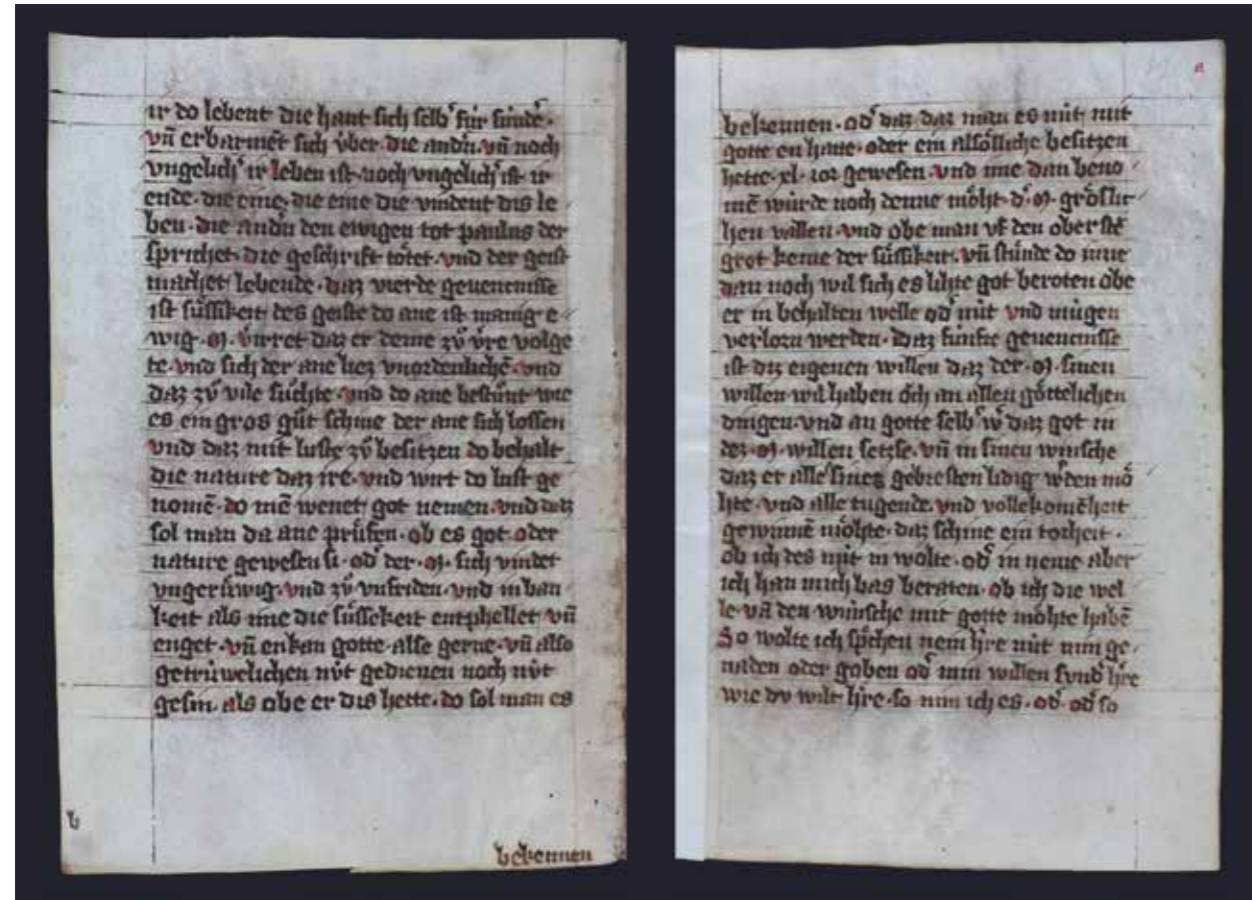 ir do lebent die hant sich selb᷑ für sünde᷑.
vn̄ erbarmēt sich v́ber die and᷑n. vn̄ noch
vngelich ir leben ist. noch vngelich ist ir
ende. die eine. die eine die vindent dis le
ben. die and᷑n den ewigen tot paulus der
sprichet. die geschrift tötet. vnd der geist
machet lebende. daz vierde geuencnisse
ist süssikeit des geiste do ane ist manig e
wig. M. v́irret daz er deme zů v́re volge
te. vnd sich der ane liez vnordenlichē. vnd
daz zů vile sůchte. vnd do ane bestůnt wie
es ein gros gůt schine der ane sich lossen
vnd daz mit luste zů besitzen do behalt
die nature daz ire. vnd wirt do lust ge
nomē. do mē wenet got nemen. vnd daz
sol man da ane prüfen. ob es got. oder
nature gewesen si. od᷑ der. M. sich vindet
vngerüwig. vnd zů vnfriden. vnd in ban
keit als ime die süssekeit entphellet vn̄
enget. vn̄ enkan gotte. alse gerne. vn̄ also
getrüwelichen nüt gedienen noch nüt
gesin. als obe er dis hette. do sol man es
b
bekennen
a
bekennen. od᷑ daz. daz man es nüt mit
gotte en habe. oder ein alsölliche besitzen
hette. xl. ior gewesen. vnd ime dan beno
mē würde noch denne möht. d᷑. M. grösli
hen willen. vnd obe man vf den oberstē
grot keme der süssikeit. vn̄ stünde do inne
dan noch wil sich es lihte got beroten obe
er in behalten welle od᷑ nüt vnd mügen
verlorn werden. Daz fünfte geuencnisse
ist diz eigenen willen daz der. M. sinen
willen wil haben öch an allen göttelichen
dingen. vnd an gotte selb᷑ w᷑ daz got in
dez. M. willen setzse. vn̄ in sinen winsche
daz er alle sinez gebresten lidig w᷑den mö
hte. vnd alle tugende. vnd vollekomēheit
gewinnē möhte. daz schine ein torheit.
ob ich des nüt in wolte. od᷑ in neme aber
ich han mich bas beraten. ob ich die wel
le. vn̄ den wünsche mit gotte möhte habē
So wolte ich sp᷑chen nem h᷑re nüt min ge
naden oder goben od᷑ min willen sund᷑ h᷑re
wie dv wilt h᷑re. so nim ich es. od᷑. od᷑ so